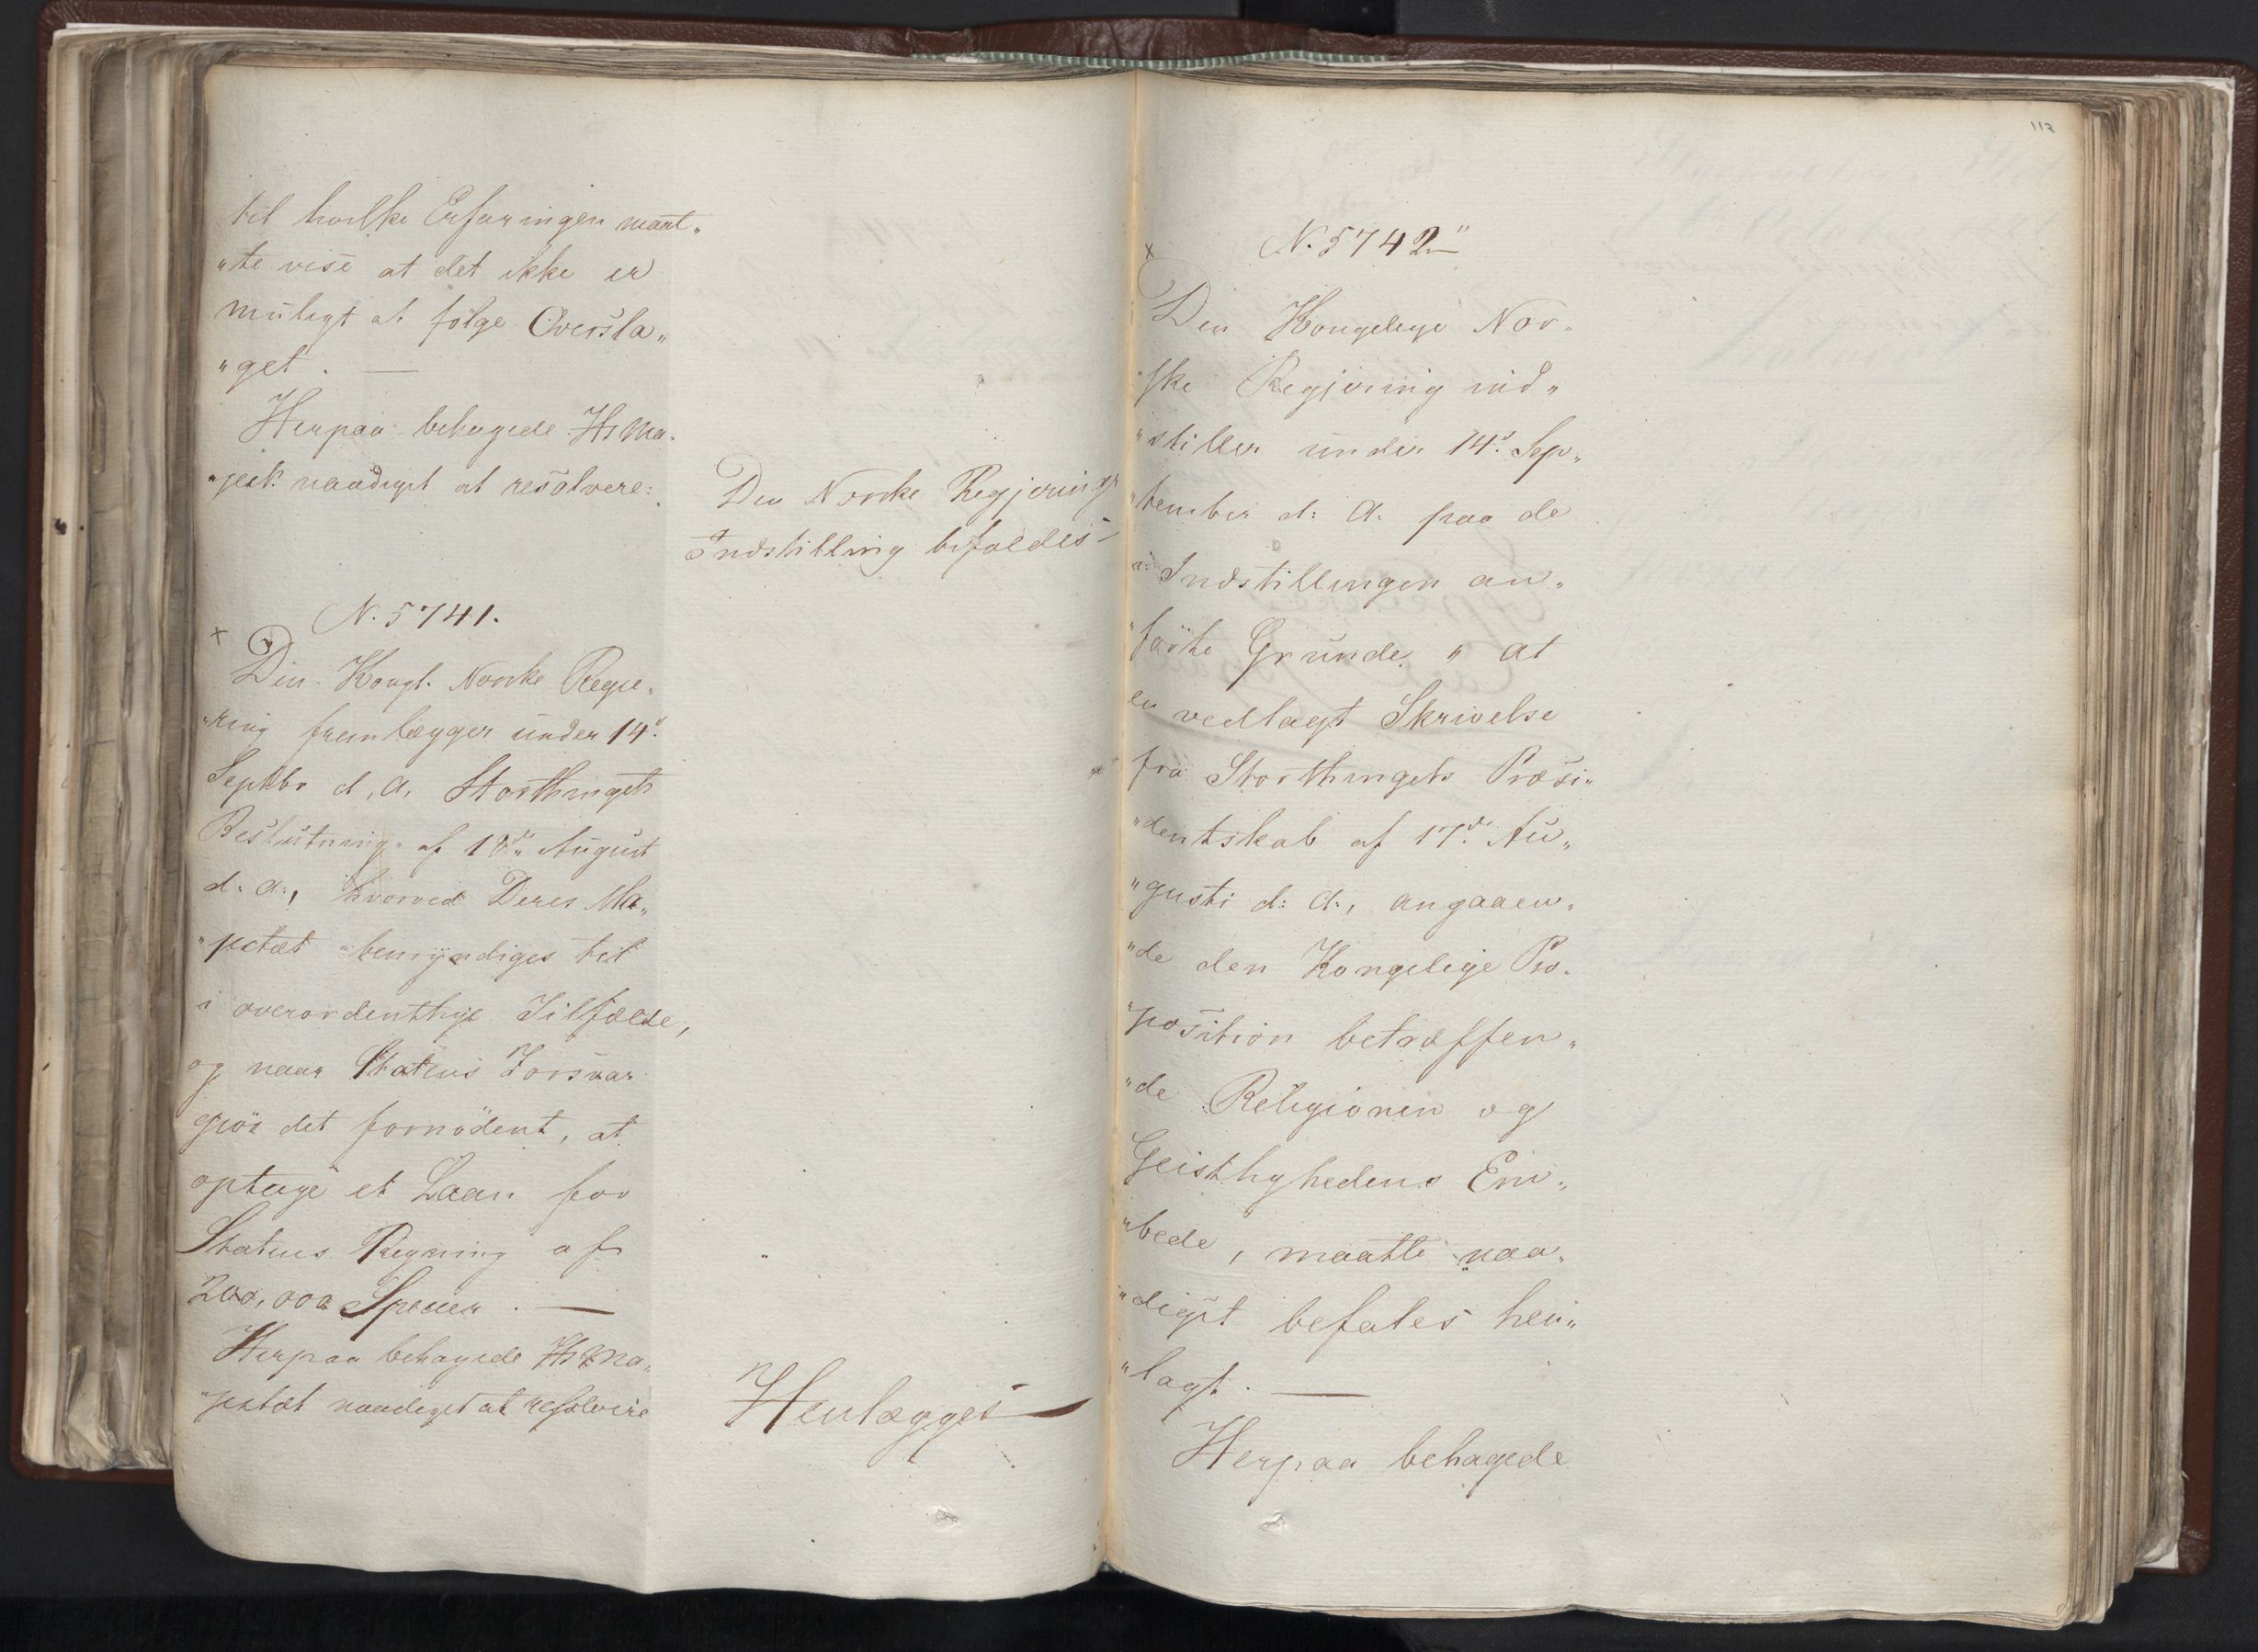 til hvilke Erfaringen maat„
„te vise at det ikke er
muligt at følge Oversla„
„get. —
Herpaa behagede Hs Ma„
„jest. naadigst at resolvere:
Den Norske Regjerings
Indstilling bifaldes
N. 5741.
x
Den Kongl. Norske Regje„
„ring fremlægger under 14d.
Septbr d. A. Storthingets
Beslutning af 18d. August
d. A., hvorved Deres Ma„
„jestæt bemyndiges til
i overordentlige Tilfælde,
og naar Statens Forsvar
gjør det fornødent, at
optage et Laan for
Statens Regning af
200,000 Specier. —
Herpaa behagede Hs Ma„
„jestæt naadigst at resolvere
Henlægges
112
N. 5742
x
Den Kongelige Nor„
„ske Regjering ind„
„stiller under 14d. Sep„
„tember d: A: paa de
i Indstillingen an„
„førte Grunde „ at
en vedlagt Skrivelse
fra Storthingets Præsi„
„dentskab af 17d. Au„
„gusti d: A:, angaaen„
„de den Kongelige Pro„
„position betræffen„
„de Religionen og
Geistlighedens Em„
„bede, maatte naa„
„digst befales hen„
„lagt. —
Herpaa behagede